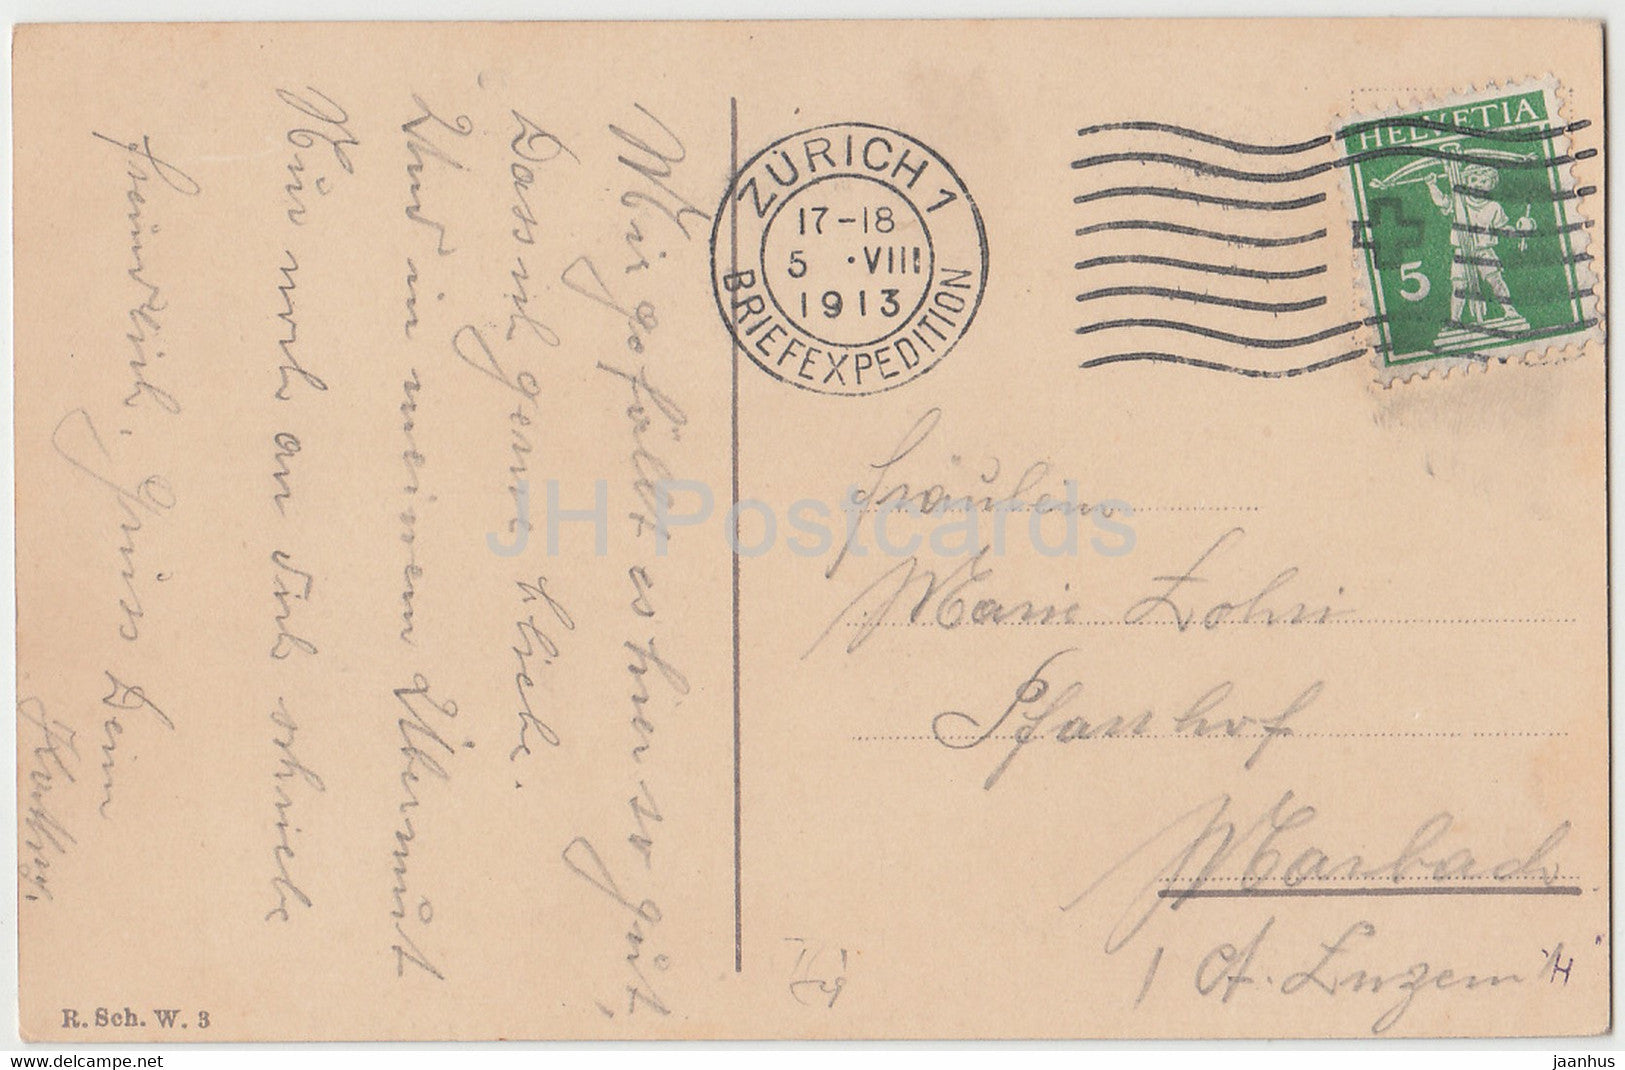 Mir gefällt es hier so gut,
Dass ich gerne bliebe.
Und in meinem Übermut
Hier noch an Dich schreibe
freundlich, Gruss Dein
ZÜRICH 1
17-18
5 · VIII
1913
BRIEFEXPEDITION
HELVETIA
5
Fräulein
Marie
Pfarrhof
Marbach
Ct. Luzern
R. Sch. W. 3
JH Postcards
www.delcampe.net
jaanhus